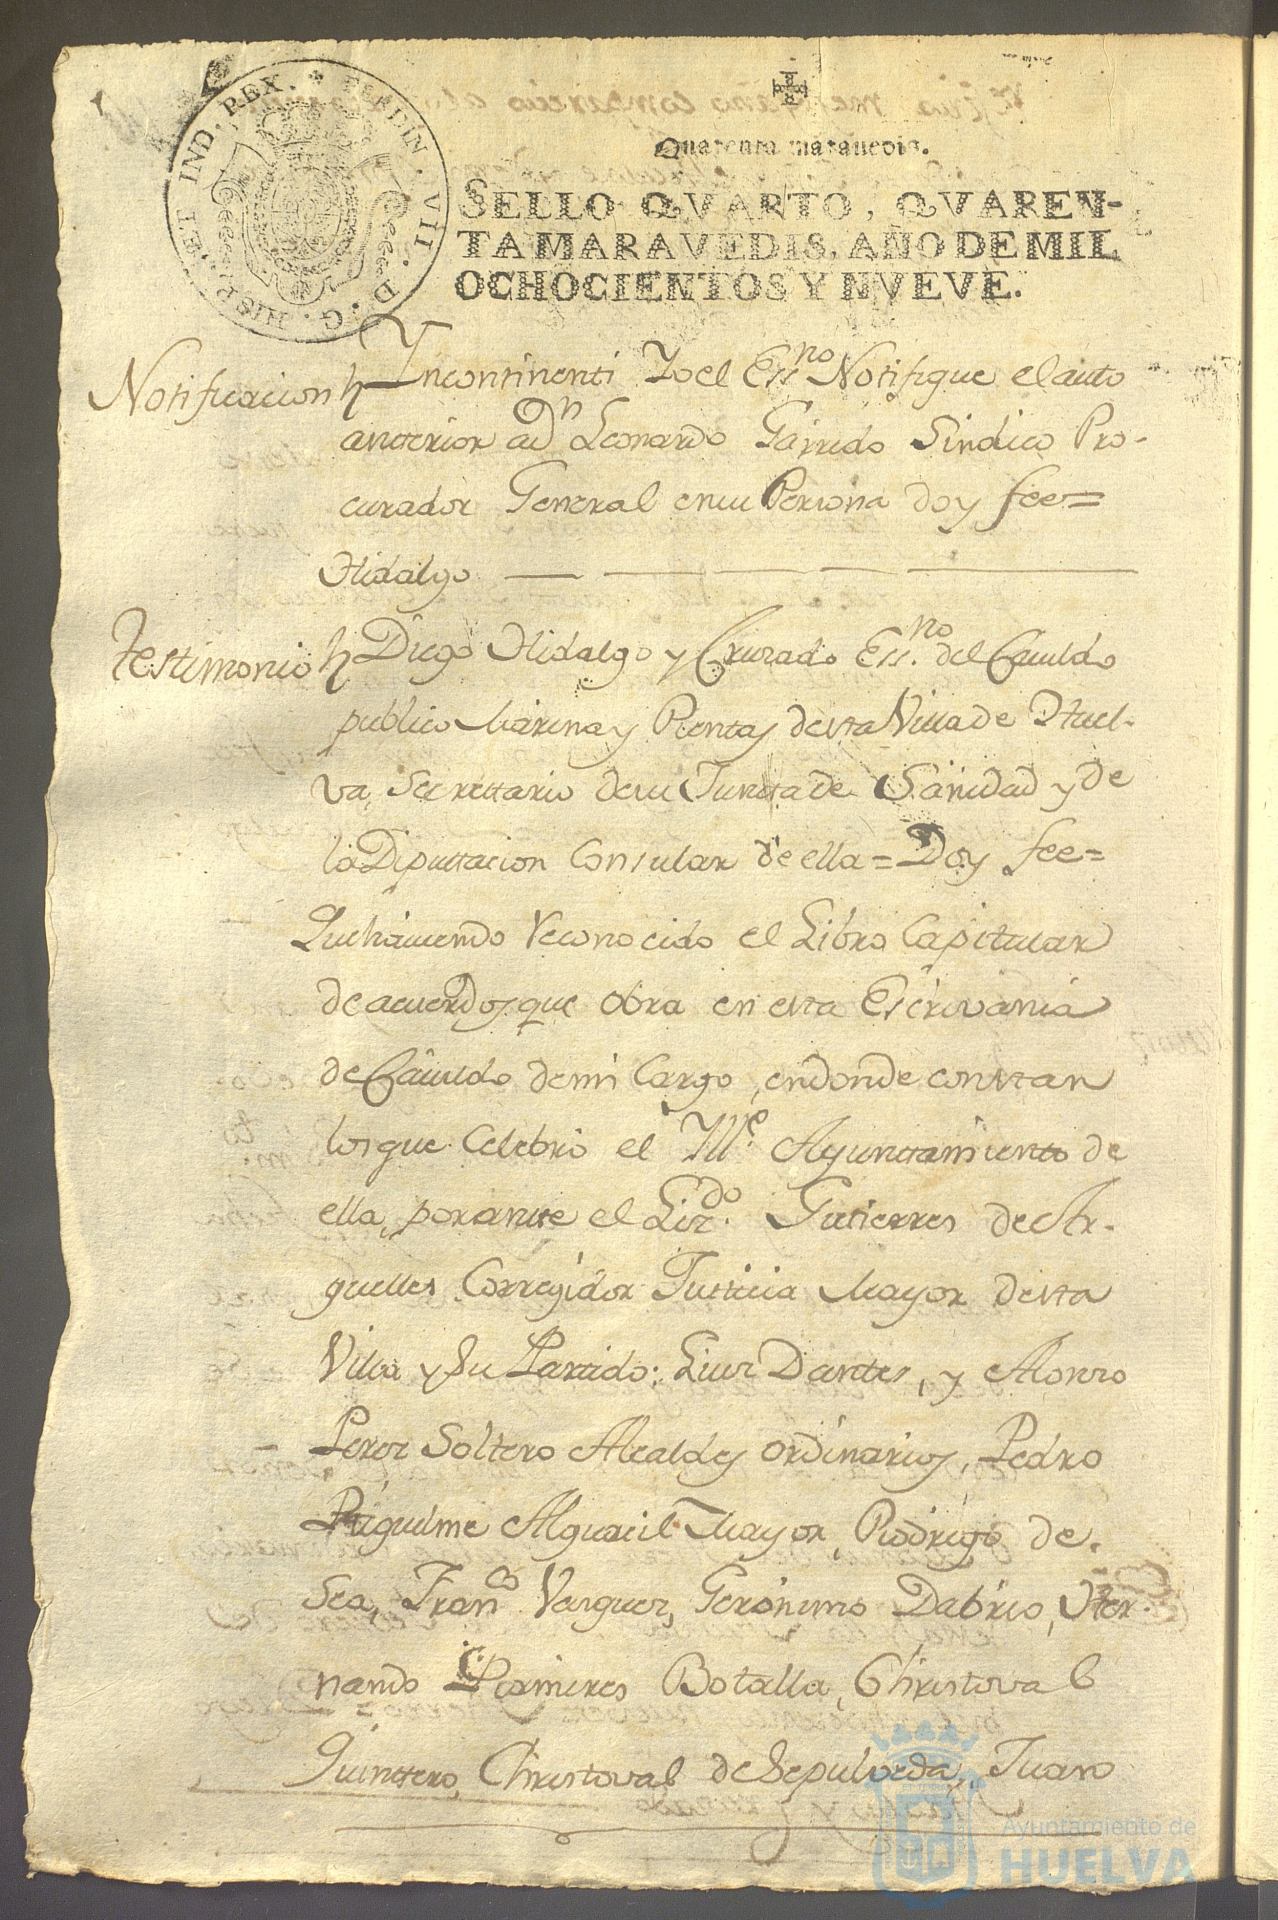 HISP. ET IND. REX. FERDIN. VII. D. G.
Quarenta marauedis.
SELLO QVARTO, QVAREN-
TA MARAVEDIS, AÑO DE MIL
OCHOCIENTOS Y NVEVE.
Notificacion Yncontinenti Yo el Essno Notifique el auto
anterior a Dn Leonardo Garrido Sindico Pro-
curador General en su Persona doy fee=
Hidalgo
Testimonio Diego Hidalgo y Cruzado Essno. del Cauildo
publico Marina y Rentas desta Villa de Huel-
va, Secrettario de su Juntta de Sanidad y de
la Diputtacion Consular de ella = Doy fee=
Que hauiendo reconocido el Libro Capitular
de acuerdos que obra en esta Escrivania
de Cauildo de mi Cargo, en donde constan
los que Celebrò el Ille. Ayunttamiento de
ella, por antte el Lizdo. Gutierres de Ar-
guelles Corregidor Justicia Mayor desta
Villa y su Partido: Luis Dantes, y Alonso
Perez Soltero Alcaldes ordinarios, Pedro
Alguacil Mayor, Rodrigo de
Sea, Franco Vasquez, Gerónimo Dabrio, Her-
nando Ramires Botalla, Christoval
Quinttero, Christoval de Sepulveda, Juan
Ayuntamiento de
HUELVA